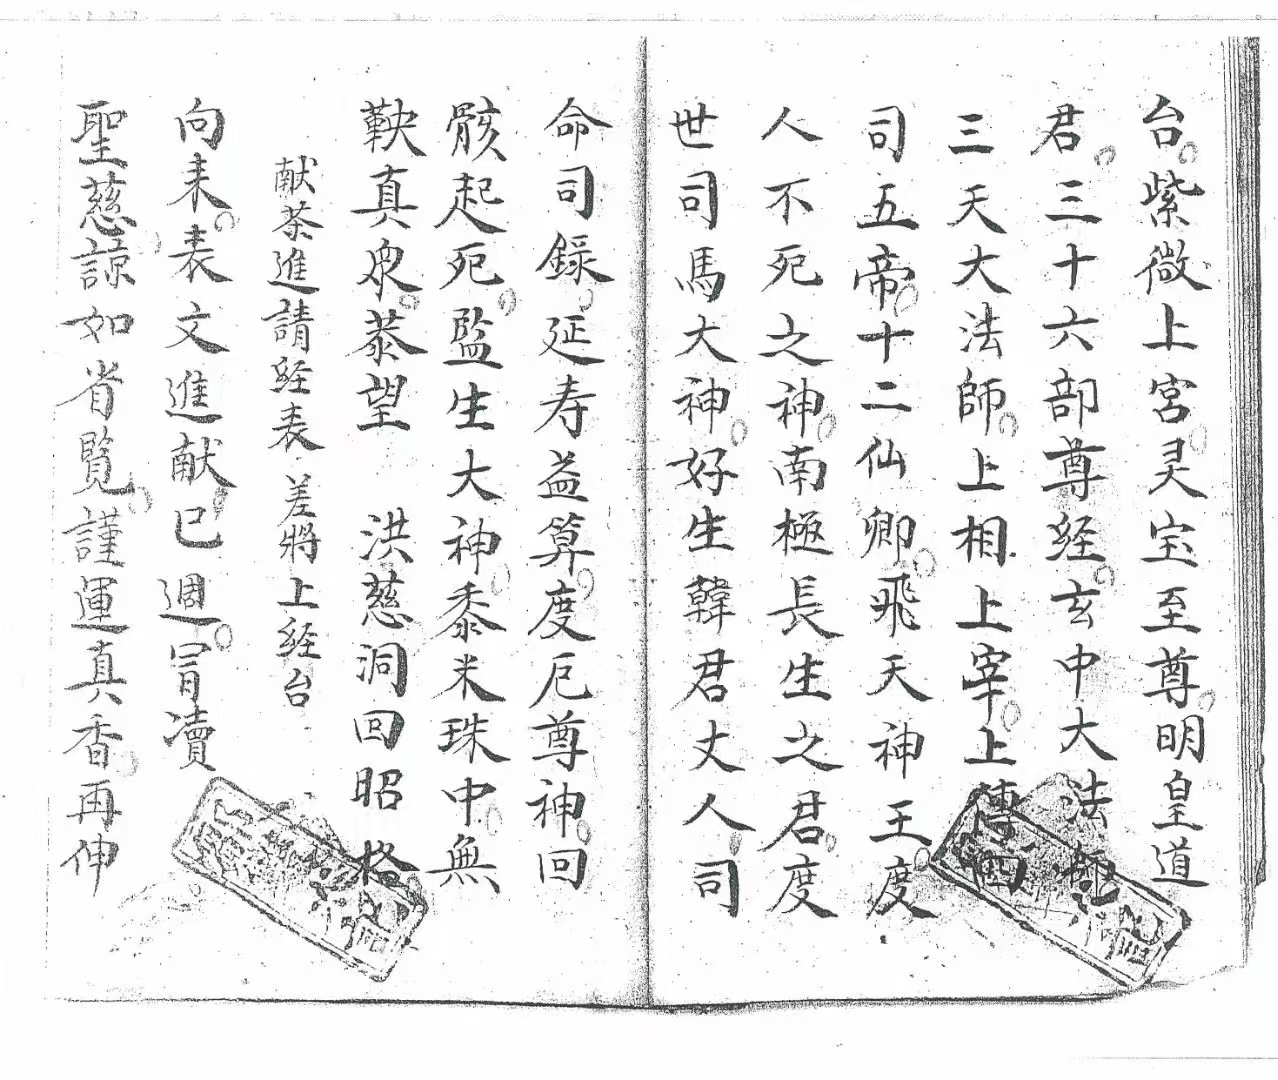 台紫微上宮灵宝至尊明皇道
君三十六部尊経玄中大法師
三天大法師上相上宰上傅四
司五帝十二仙卿飛天神王度
人不死之神南極長生之君度
世司馬大神好生韓君丈人司
命司錄延寿益算度厄尊神回
骸起死監生大神黍米珠中無
鞅真众恭望 洪慈洞回昭格
献茶進請経表 差將上経台
向耒表文進献已週冐凟
聖慈諒如省覧謹運真香再伸